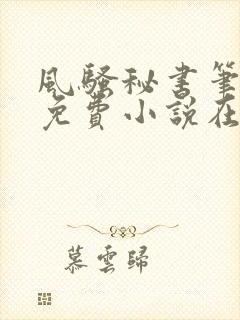 風騷秘書筆
免費小說在
慕雲歸